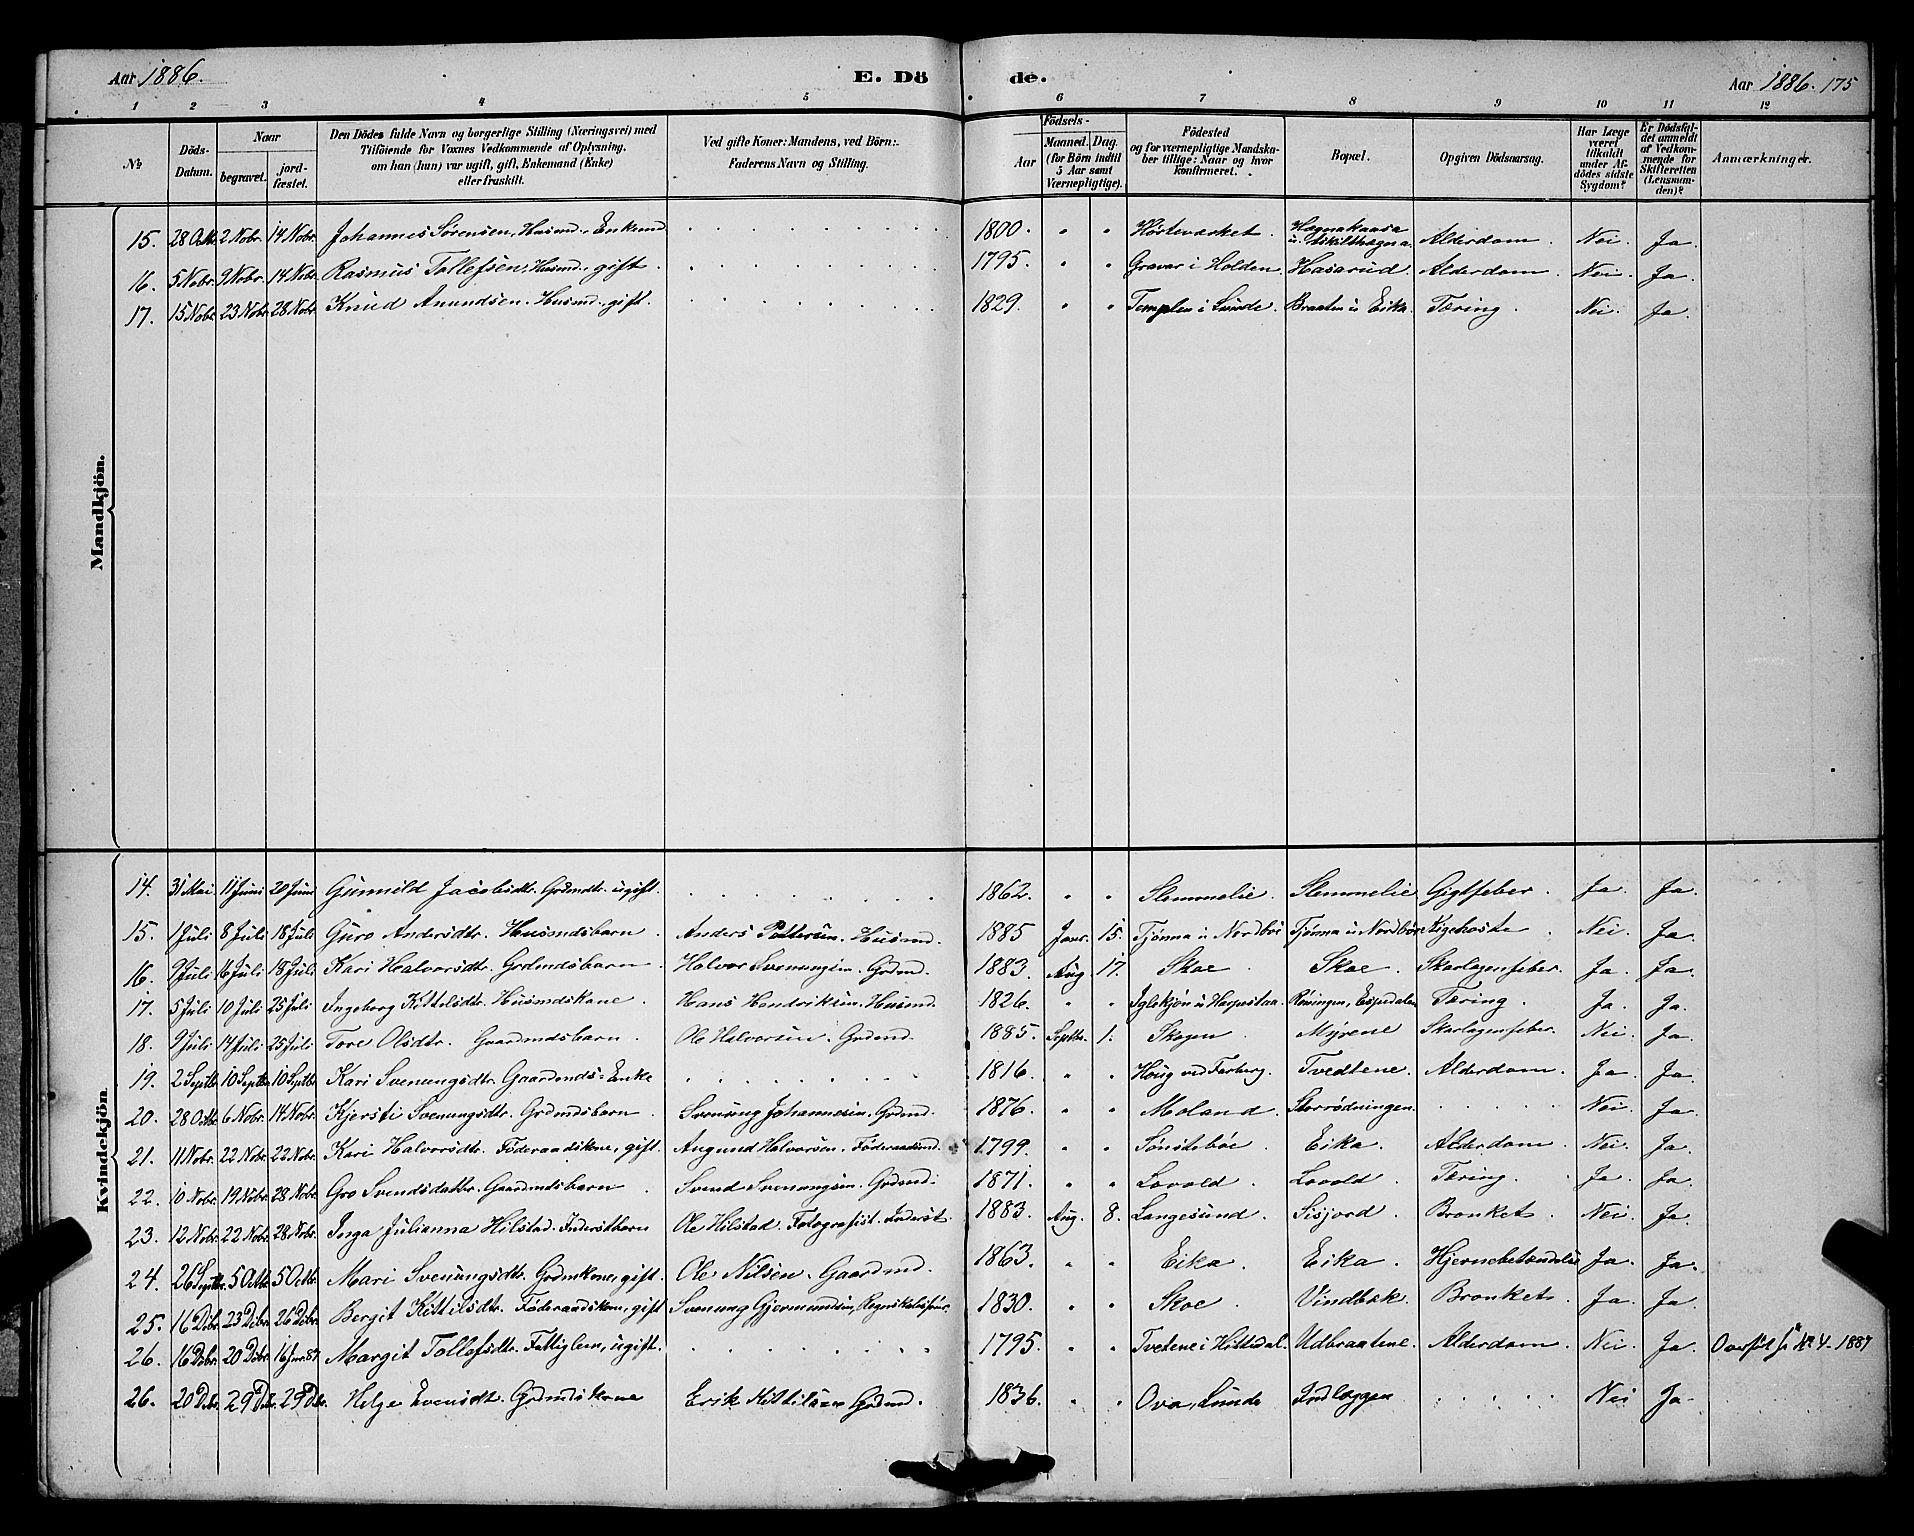 Aar 1886. E. Dö de. Aar 1886. 175
1 2 3 4 5 6 7 8 9 10 11 12
№ Döds-Datum. Naar begravet. jordfæstet. Den Dödes fulde Navn og borgerlige Stilling (Næringsvei) med Tilföiende for Voxnes Vedkommende af Oplysning, om han (hun) var ugift, gift, Enkemand (Enke) eller fraskilt. Ved gifte Koner: Mandens, ved Börn: Faderens Navn og Stilling. Födsels- Aar Maaned. Dag. (for Börn indtil 5 Aar samt Værnepligtige). Födested og for værnepligtige Mandskaber tillige: Naar og hvor konfirmeret. Bopæl. Opgiven Dödsaarsag. Har Læge været tilkaldt under Afdödes sidste Sygdom? Er Dödsfaldet anmeldt af Vedkommende for Skifteretten (Lensmanden)? Anmærkninger.
Mandkjön.
15. 28 Octb. 2 Nobr. 14 Nobr. Johannes Sörensen, Husmd., Enkemd 1800. " " Hörteværket. Hægnakaasa u. Eskilthægna. Alderdom. Nei. Ja.
16. 5 Nobr. 9 Nobr. 14 Nobr. Rasmus Tollefsen, Husmd., gift. 1795. " " Gravar i Holden. Hasarud. Alderdom. Nei. Ja.
17. 15 Nobr. 23 Nobr. 28 Nobr. Knud Anundsen. Husmd., gift. 1829. " " Templen i Lunde. Braaten u. Eika. Tæring. Nei. Ja.
Kvindekjön
14. 31 Mai 11 Juni 20 Juni Gunnild Jacobsdtr. Grdmdtr. ugift. 1862. " " Slemmelie. Slemmelie. Gigtfeber. Ja. Ja.
15. 1 Juli 8 Juli 18 Juli Guro Andersdtr. Husmdsbarn. Anders Pettersen. Husmd. 1885 Janr. 15. Tjönna u. Nordböe Tjönna u. Nordböe Kigehoste. Nei. Ja.
16. 9 Juli 16 Juli 18 Juli Kari Halvorsdtr. Grdmdsbarn. Halvor Svenungsen. Grdmd. 1883. Aug 17. Skoe. Skoe. Skarlagensfeber. Ja. Ja.
17. 5 Juli 10 Juli 25 Juli Ingeborg Kittelsdtr. Husmdskone. Hans Hendriksen. Husmd. 1826. " " Iglekjøn u. Espedalen Tæring. Ja. Ja.
18. 9 Juli 14 Juli 25 Juli Tore Olsdtr. Gaardmdsbarn. Ole Halvorsen. Grdmd. 1885. Septbr. 1. Skogen. Myrene. Skarlagensfeber. Nei. Ja.
19. 2 Septbr 10 Septbr 10 Septbr Kari Svenungsdtr. Gaardmds-Enke 1816. " " Houg ved Farberg. Tvedtene. Alderdom. Ja. Ja.
20. 28 Octbr. 6 Nobr. 14 Nobr. Kjersti Svenungsdtr. Grdmdsbarn. Svenung Johannesen. Grdmd. 1876. " " Moland. Storrödningen. Nei. Ja.
21. 11 Nobr. 22 Nobr. 22 Nobr. Kari Halvorsdtr. Föderaadskone, gift. Augund Halvorsen. Föderaadsmd. 1799. " " Sönsteböe. Eika. Alderdom. Nei. Ja.
22. 10 Nobr. 19 Nobr. 28 Nobr. Gro Svendsdatter. Gaardmdsbarn. Svend Svenungsen. Grdmd. 1871. " " Lovold. Lovold. Tæring. Ja. Ja.
23. 12 Nobr. 22 Nobr. 28 Nobr. Inga Julianna Hilstad. Inderstbarn Ole Hilstad. Fotografist. Inderst. 1883. Aug. 8. Langesund. Sisjord. Bronket. Nei. Ja.
24. 26 Septbr. 5 Octb. 5 Octb. Mari Svenungsdtr. Grdmkone, gift. Ole Nilsen. Gaardmd. 1863. " " Eika. Eika. Hjernebetændelse Ja. Ja.
25. 16 Debr. 23 Debr. 26 Debr. Bergit Kittilsdtr. Föderaadskone, gift Svenung Gjermundsen, 1830. " " Skoe. Vindbæk. Bronket. Ja. Ja.
26. 16 Debr. 20 Debr. 16 Jan. 87 Margit Tollefsdtr. Fattiglem, ugift. 1795. " " Tvetene i Hitterdal. Udbraatene. Alderdom. Nei. Ja. Overfört til № 4. 1887
26. 20 Dcb. 29 Dcb. 29 Dcb. Helge Evensdtr. Grdmdskone Erik Kittilsen Grdmd. 1836. " " Ova, Lunde Indlæggen Nei Ja.